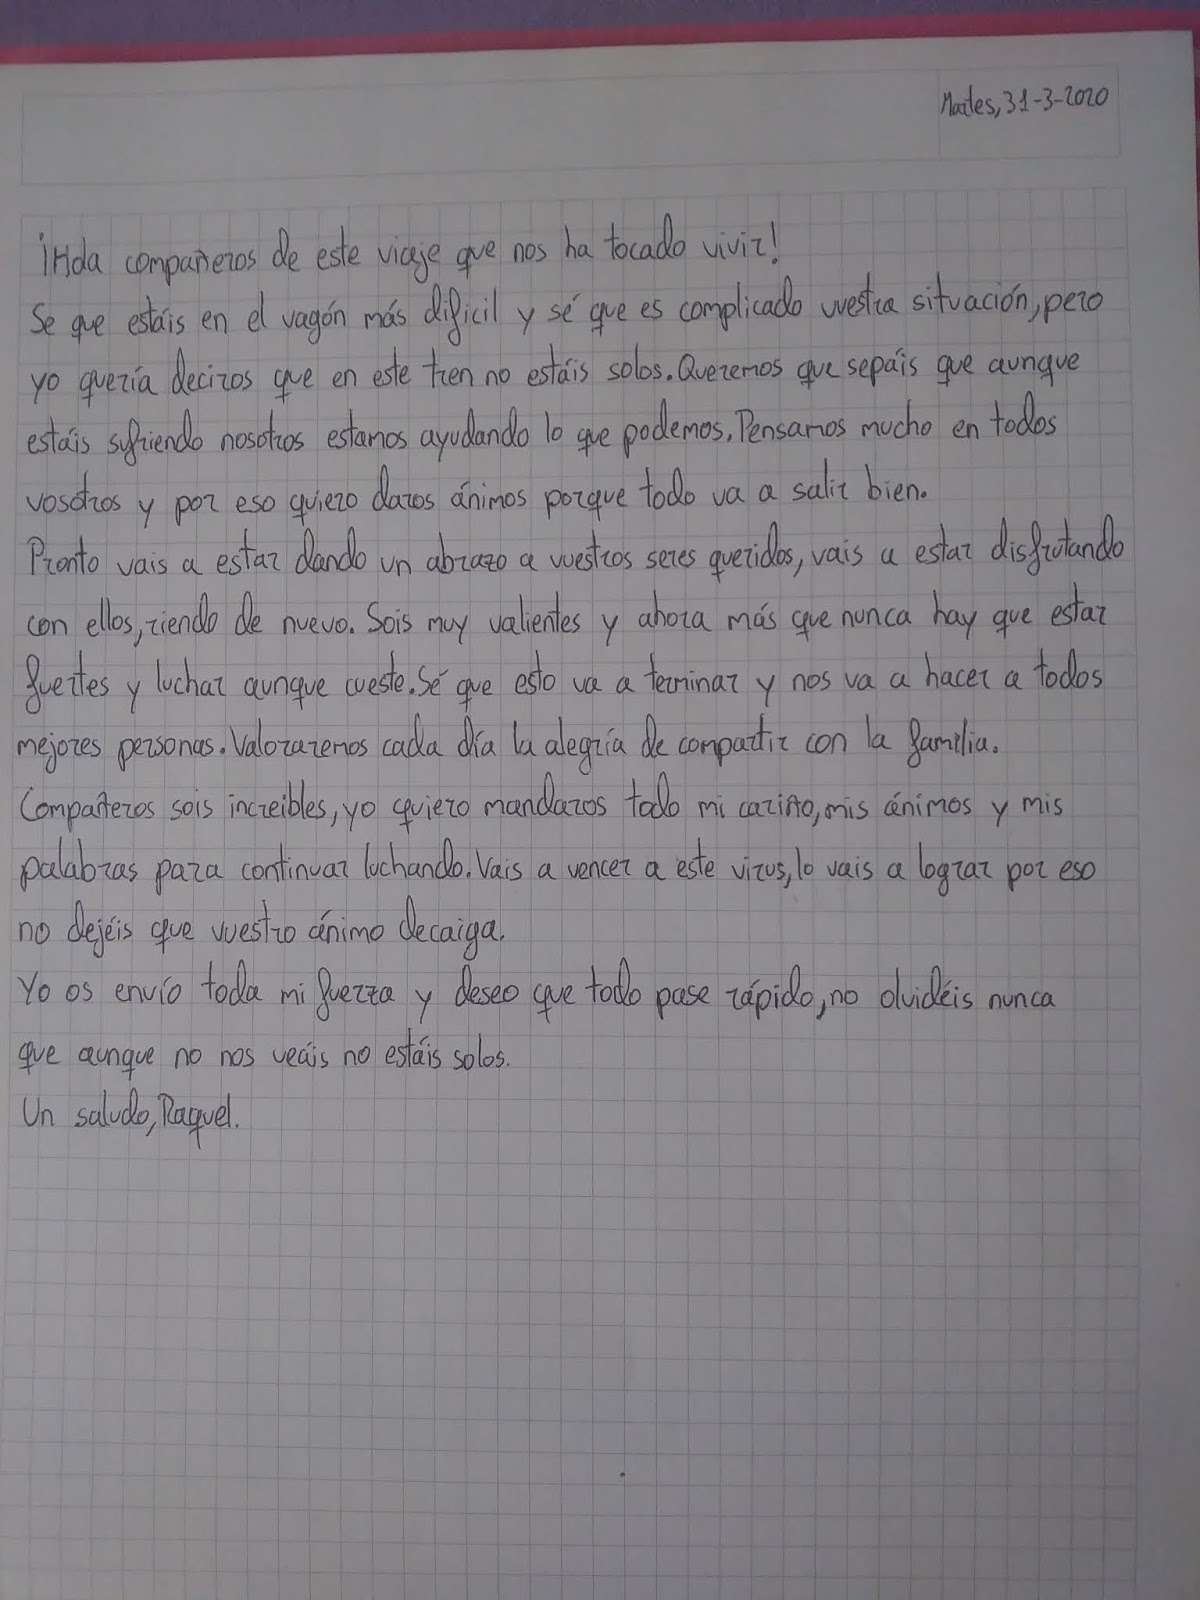 Martes, 31-3-2020
¡Hola compañeros de este viaje que nos ha tocado vivir!
Se que estáis en el vagón más dificil y sé que es complicado vuestra situación, pero
yo quería deciros que en este tren no estáis solos. Queremos que sepáis que aunque
estáis sufriendo nosotros estamos ayudando lo que podemos. Pensamos mucho en todos
vosotros y por eso quiero daros ánimos porque todo va a salir bien.
Pronto vais a estar dando un abrazo a vuestros seres queridos, vais a estar disfrutando
con ellos, riendo de nuevo. Sois muy valientes y ahora más que nunca hay que estar
fuertes y luchar aunque cueste. Sé que esto va a terminar y nos va a hacer a todos
mejores personas. Valoraremos cada día la alegría de compartir con la familia.
Compañeros sois increibles, yo quiero mandaros todo mi cariño, mis ánimos y mis
palabras para continuar luchando. Vais a vencer a este virus, lo vais a lograr por eso
no dejéis que vuestro ánimo decaiga.
Yo os envío toda mi fuerza y deseo que todo pase rápido, no olvidéis nunca
que aunque no nos veáis no estáis solos.
Un saludo, Raquel.